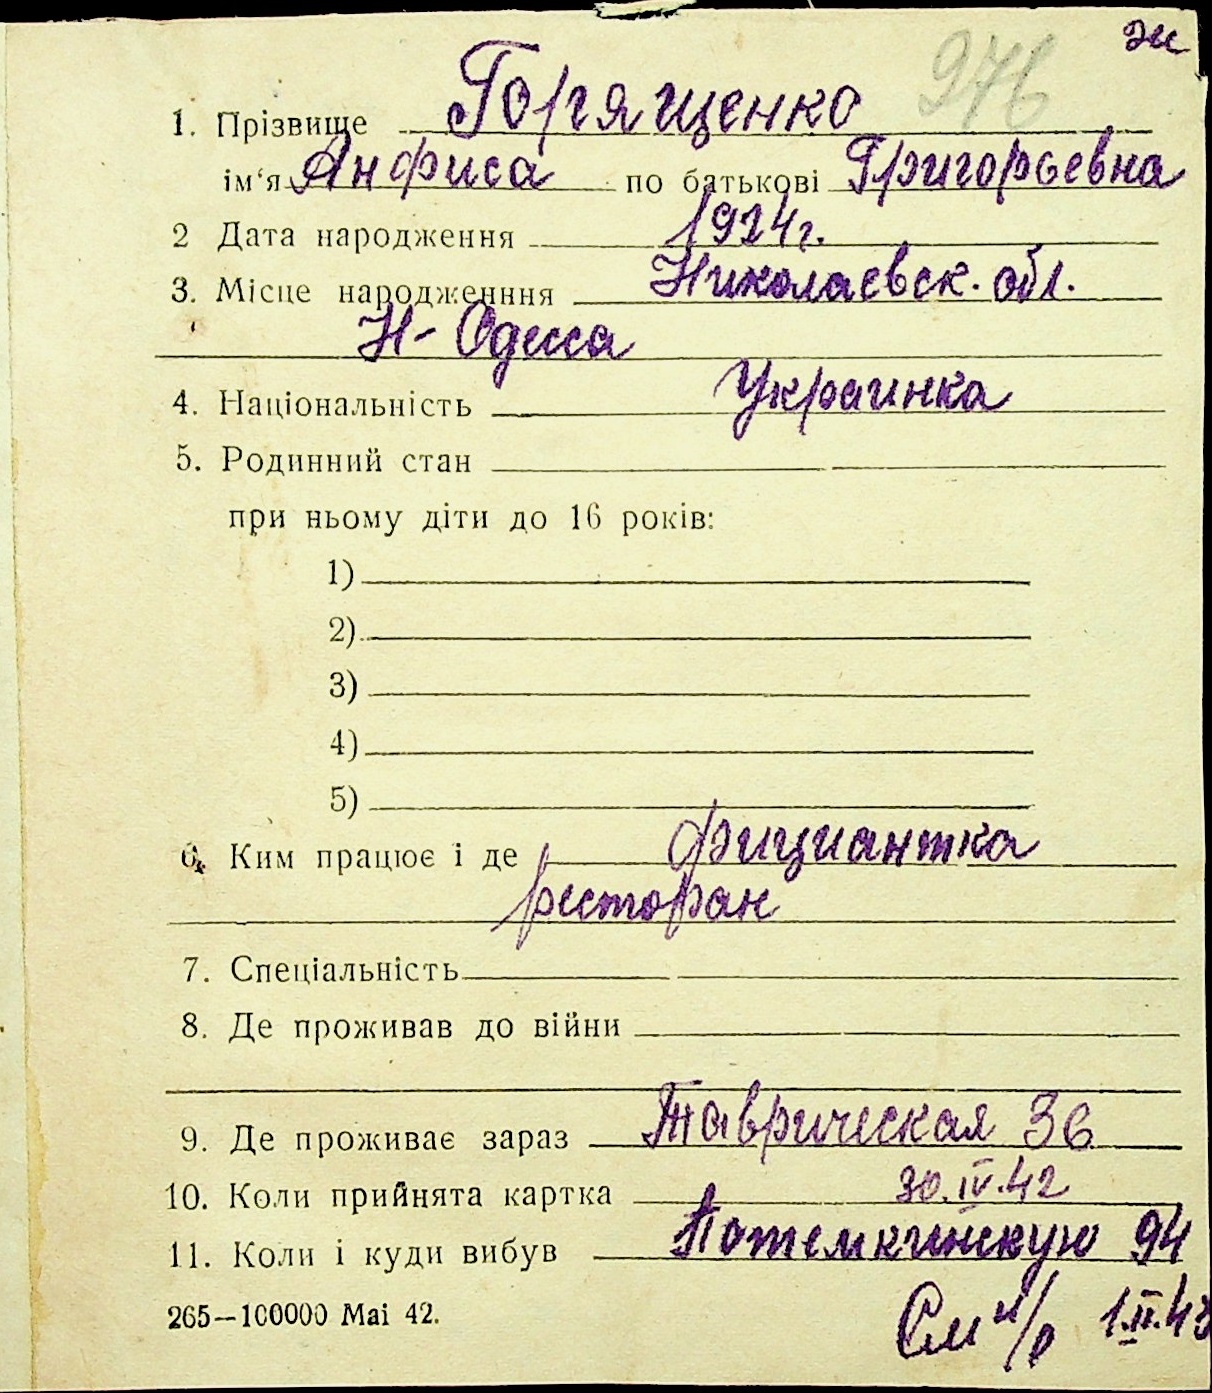 эк
276
1. Прізвище Горященко
ім‘я Анфиса по батькові Григорьевна
2 Дата народження 1924г.
3. Місце народженння Николаевск. обл.
Н- Одесса
4. Національність Украинка
5. Родинний стан
при ньому діти до 16 років:
1)
2)
3)
4)
5)
6. Ким працює і де фициантка
ресторан
7. Спеціальність
8. Де проживав до війни
9. Де проживає зараз Таврическая 36
10. Коли прийнята картка 30.IV.42
11. Коли і куди вибув Потемкинскую 94
265—100000 Mai 42.
См н/о 1.II.43